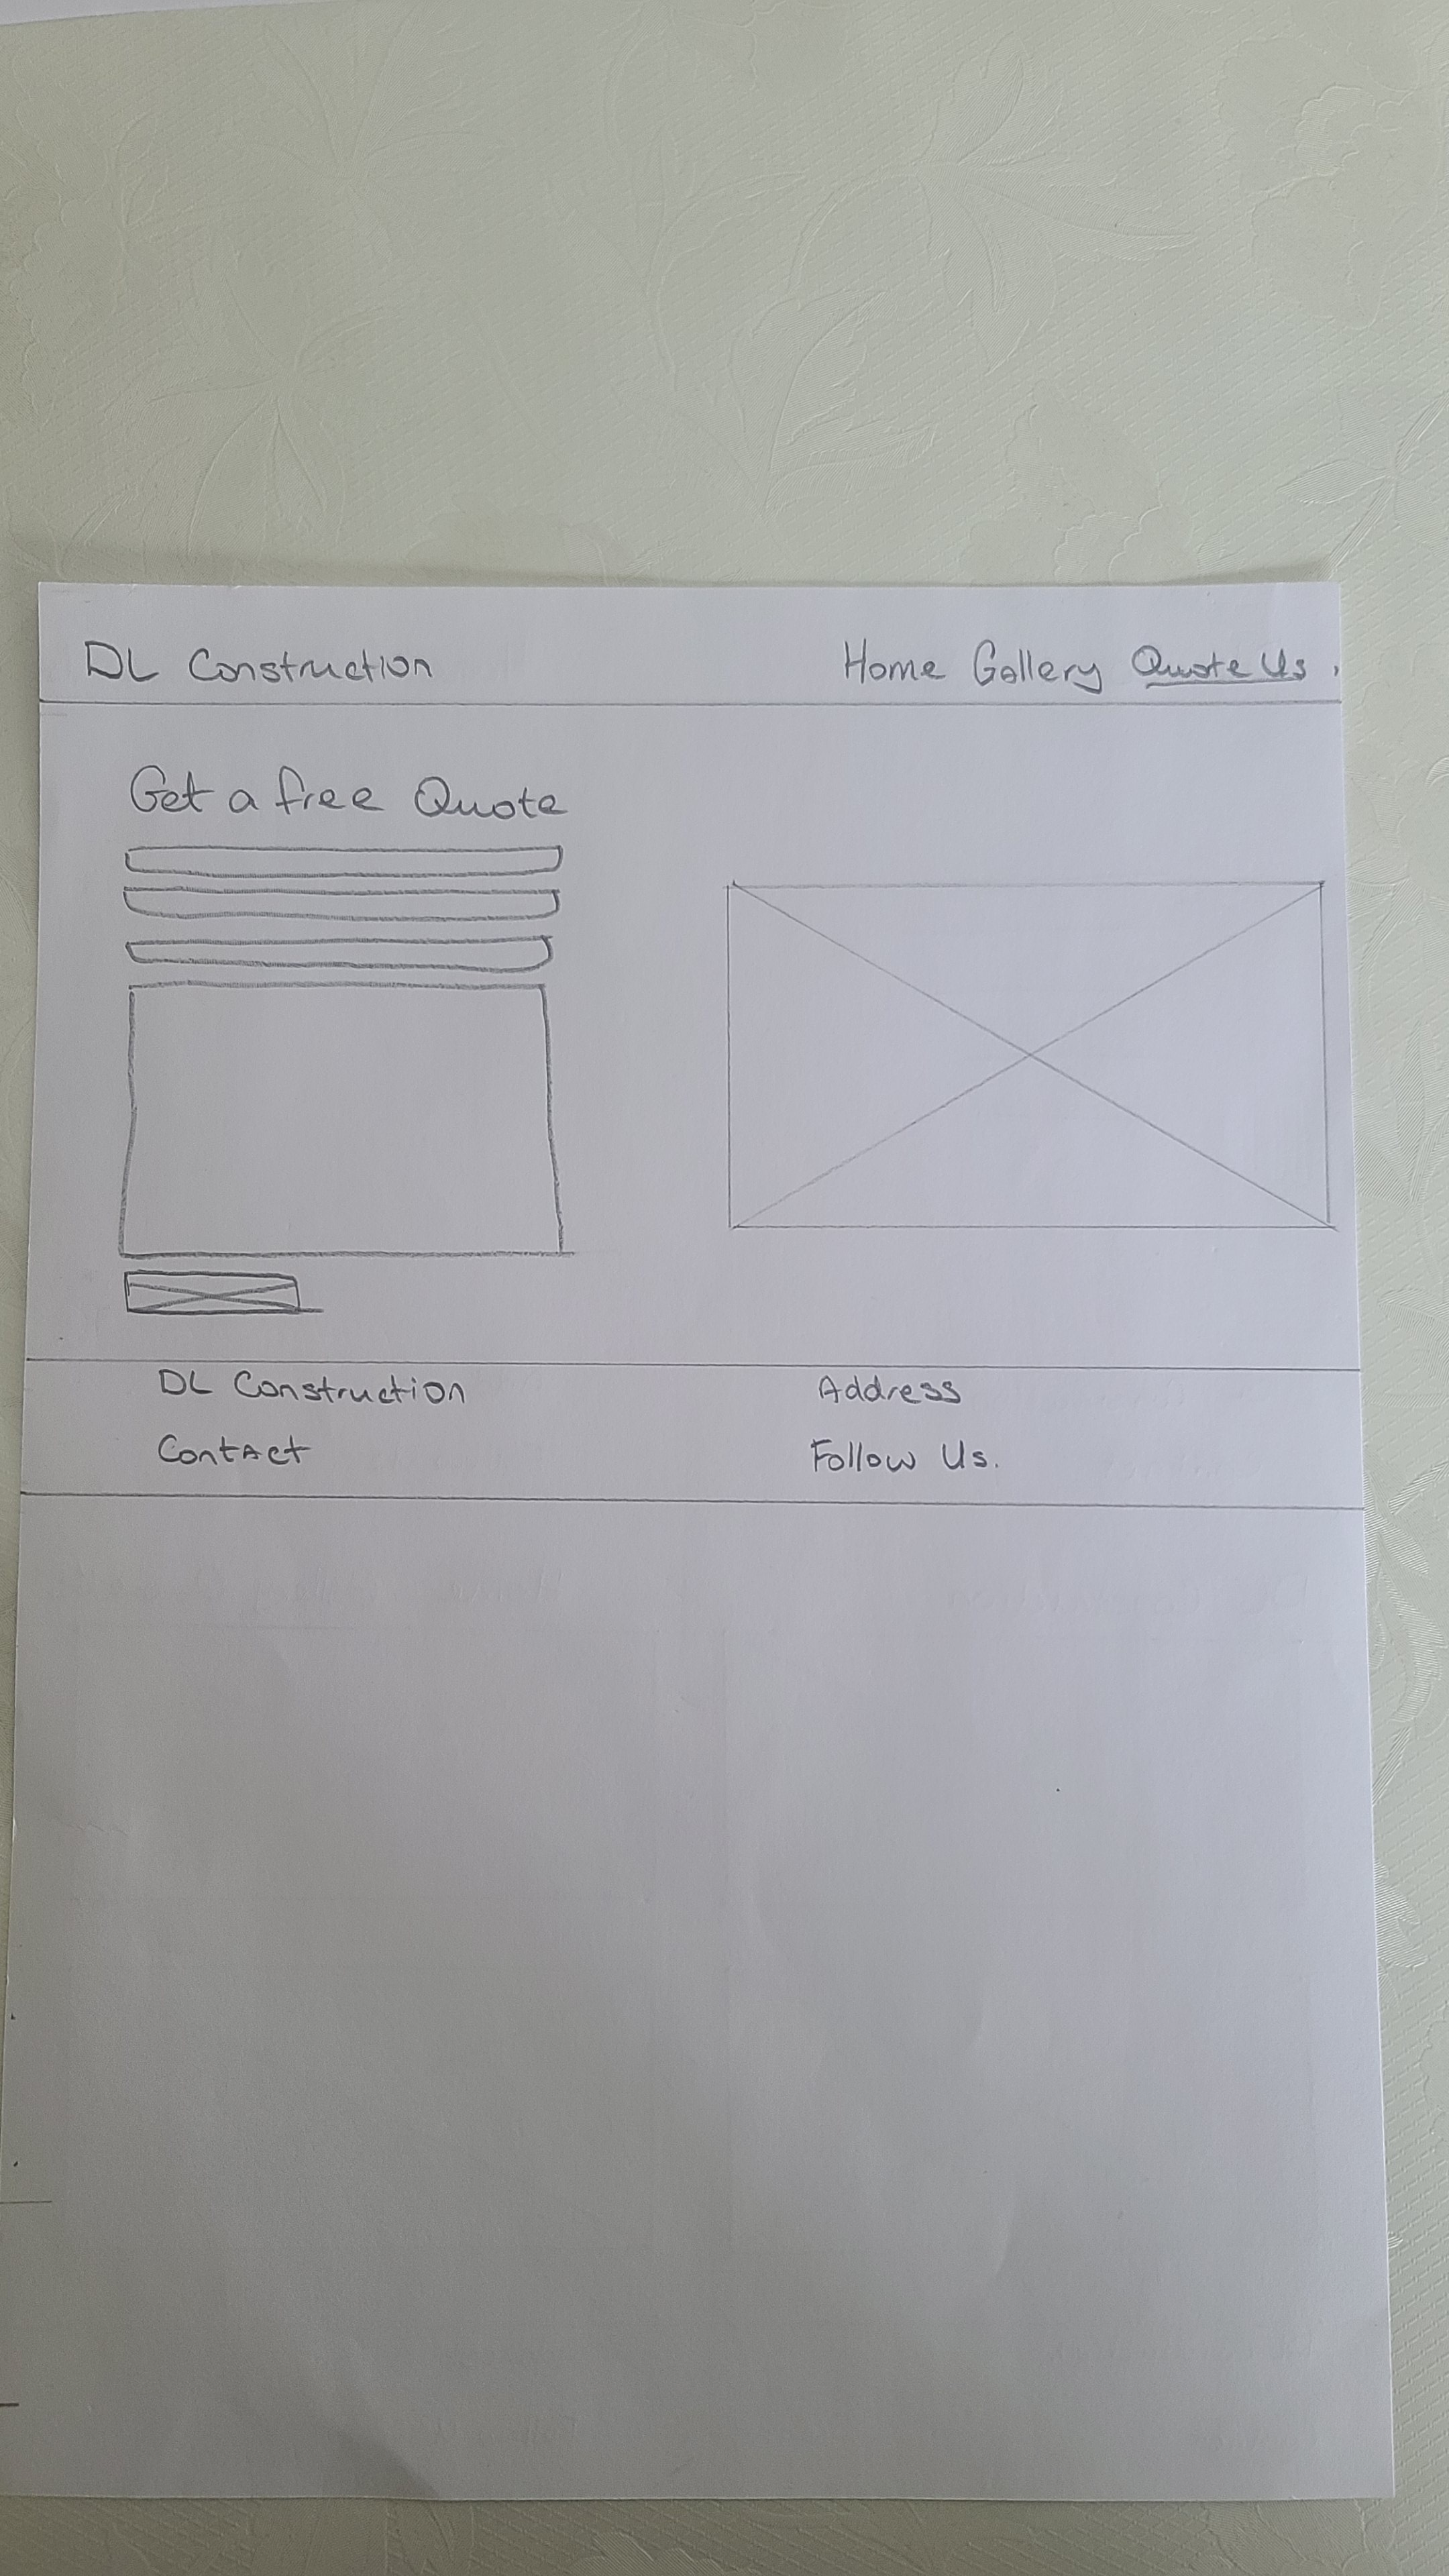 DL Construction
Home Gallery Quote Us.
Get a free Quote
DL Construction
Address
Contact
Follow Us.